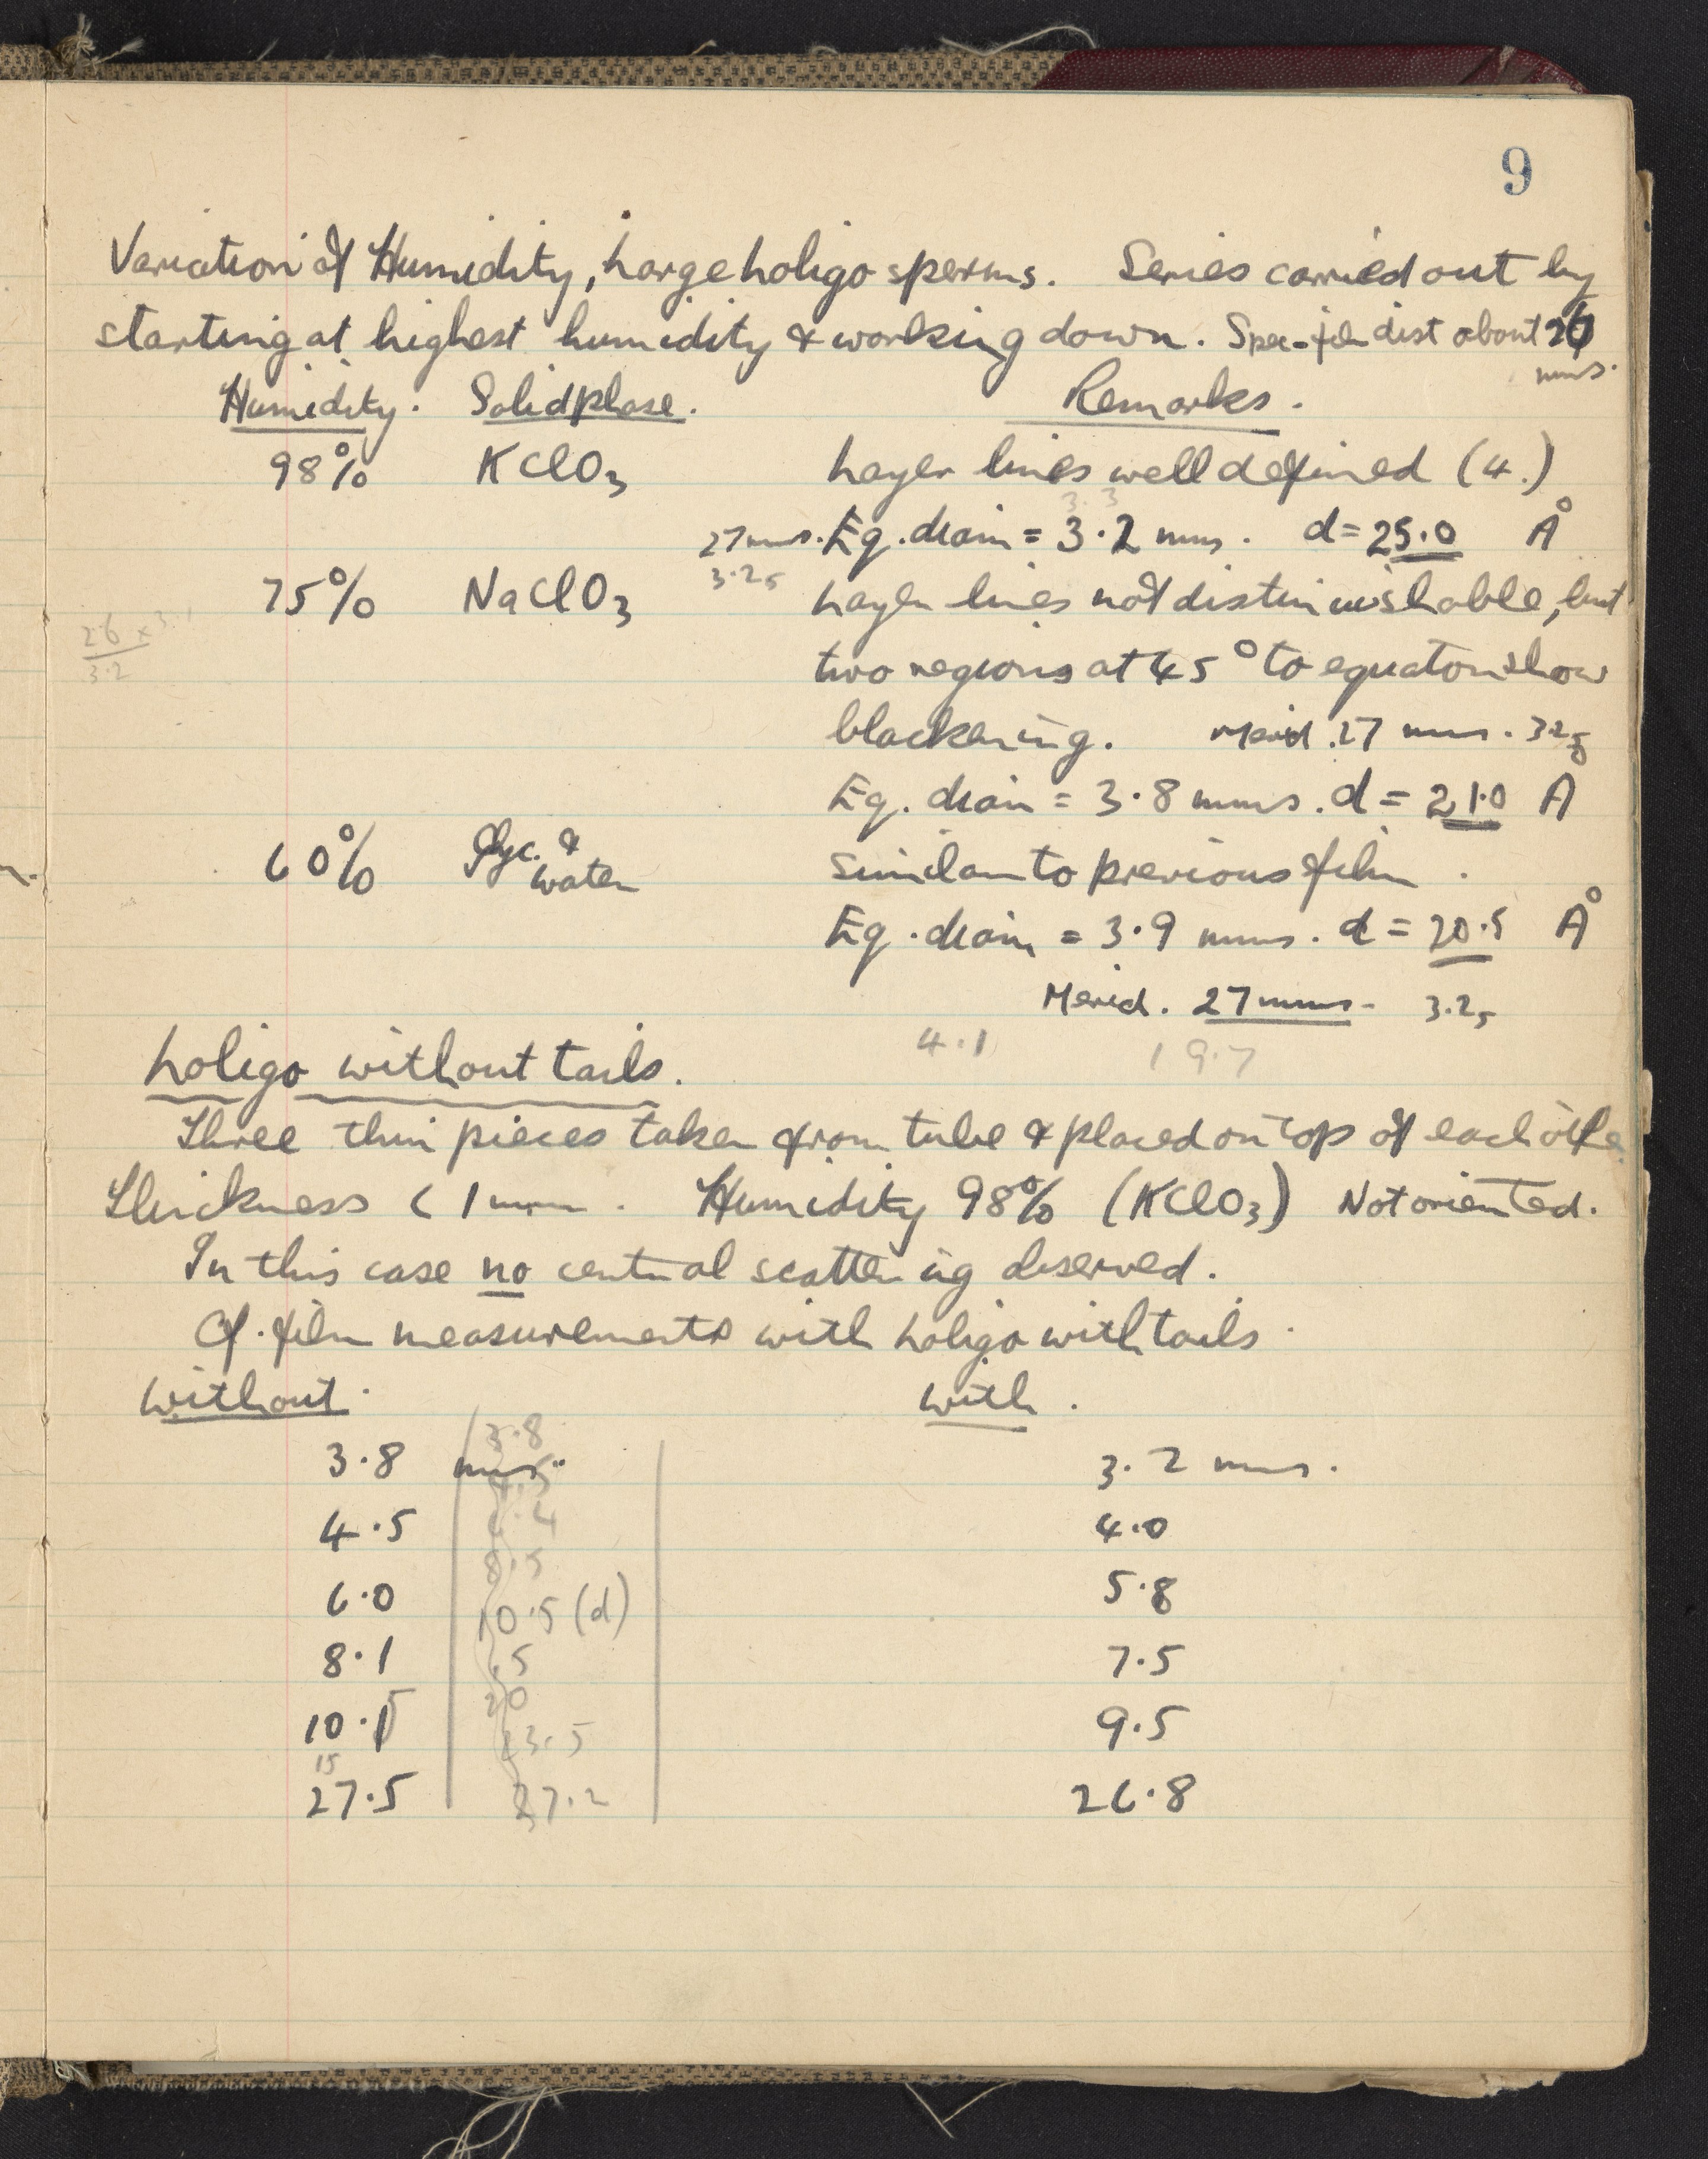 9
Variation of Humidity, Large Loligo sperms. Series carried out by
starting at highest humidity & working down. Spec-film dist about 26
mms.
Humidity. Solid phase. Remarks.
98% KClO3 Layer lines well defined (4.)
3.3
27 mms. Eq. diam = 3.2 mms. d = 25.0 Å
3.25
75% NaClO3 Layer lines not distinuishable, but
2.6 × 3.1
3.2
two regions at 45° to equator show
blackening. Merid. 27 mms. 3.25
Eq. diam = 3.8 mms. d = 21.0 Å
60% Glyc. & water Similar to previous film.
Eq. diam = 3.9 mms. d = 20.5 Å
Merid. 27 mms. 3.25
4.1 19.7
Loligo without tails.
Three thin pieces taken from tube & placed on top of each other
Thickness < 1 mm. Humidity 98% (KClO3) Not oriented.
In this case no central scattering observed.
Cf. film measurements with Loligo with tails.
without. with.
3.8
3.8 mms. 3.2 mms.
4.5
4.5 6.4 4.0
8.5
6.0 10.5 (d) 5.8
8.1 .5 7.5
20
10.5 13.5 9.5
15
27.5 27.2 26.8